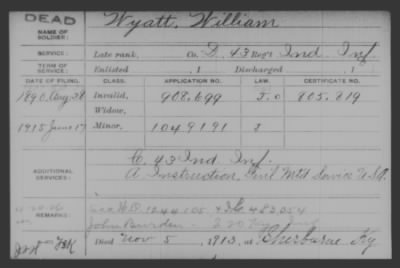 DEAD
NAME OF SOLDIER:
Wyatt, William
SERVICE:
Late rank, Co. D, 43 Reg't Ind. Inf.
TERM OF SERVICE:
Enlisted , 1 Discharged , 1
DATE OF FILING. CLASS. APPLICATION NO. LAW. CERTIFICATE NO.
1890, Aug. 28 Invalid, 908.699 805.819
Widow,
1915 June 17 Minor, 1049191
ADDITIONAL SERVICES:
C. 43 Ind Inf.
Service U.S.A.
REMARKS:
John Burden
Died Nov 5, 1913, at Sherburne Ky